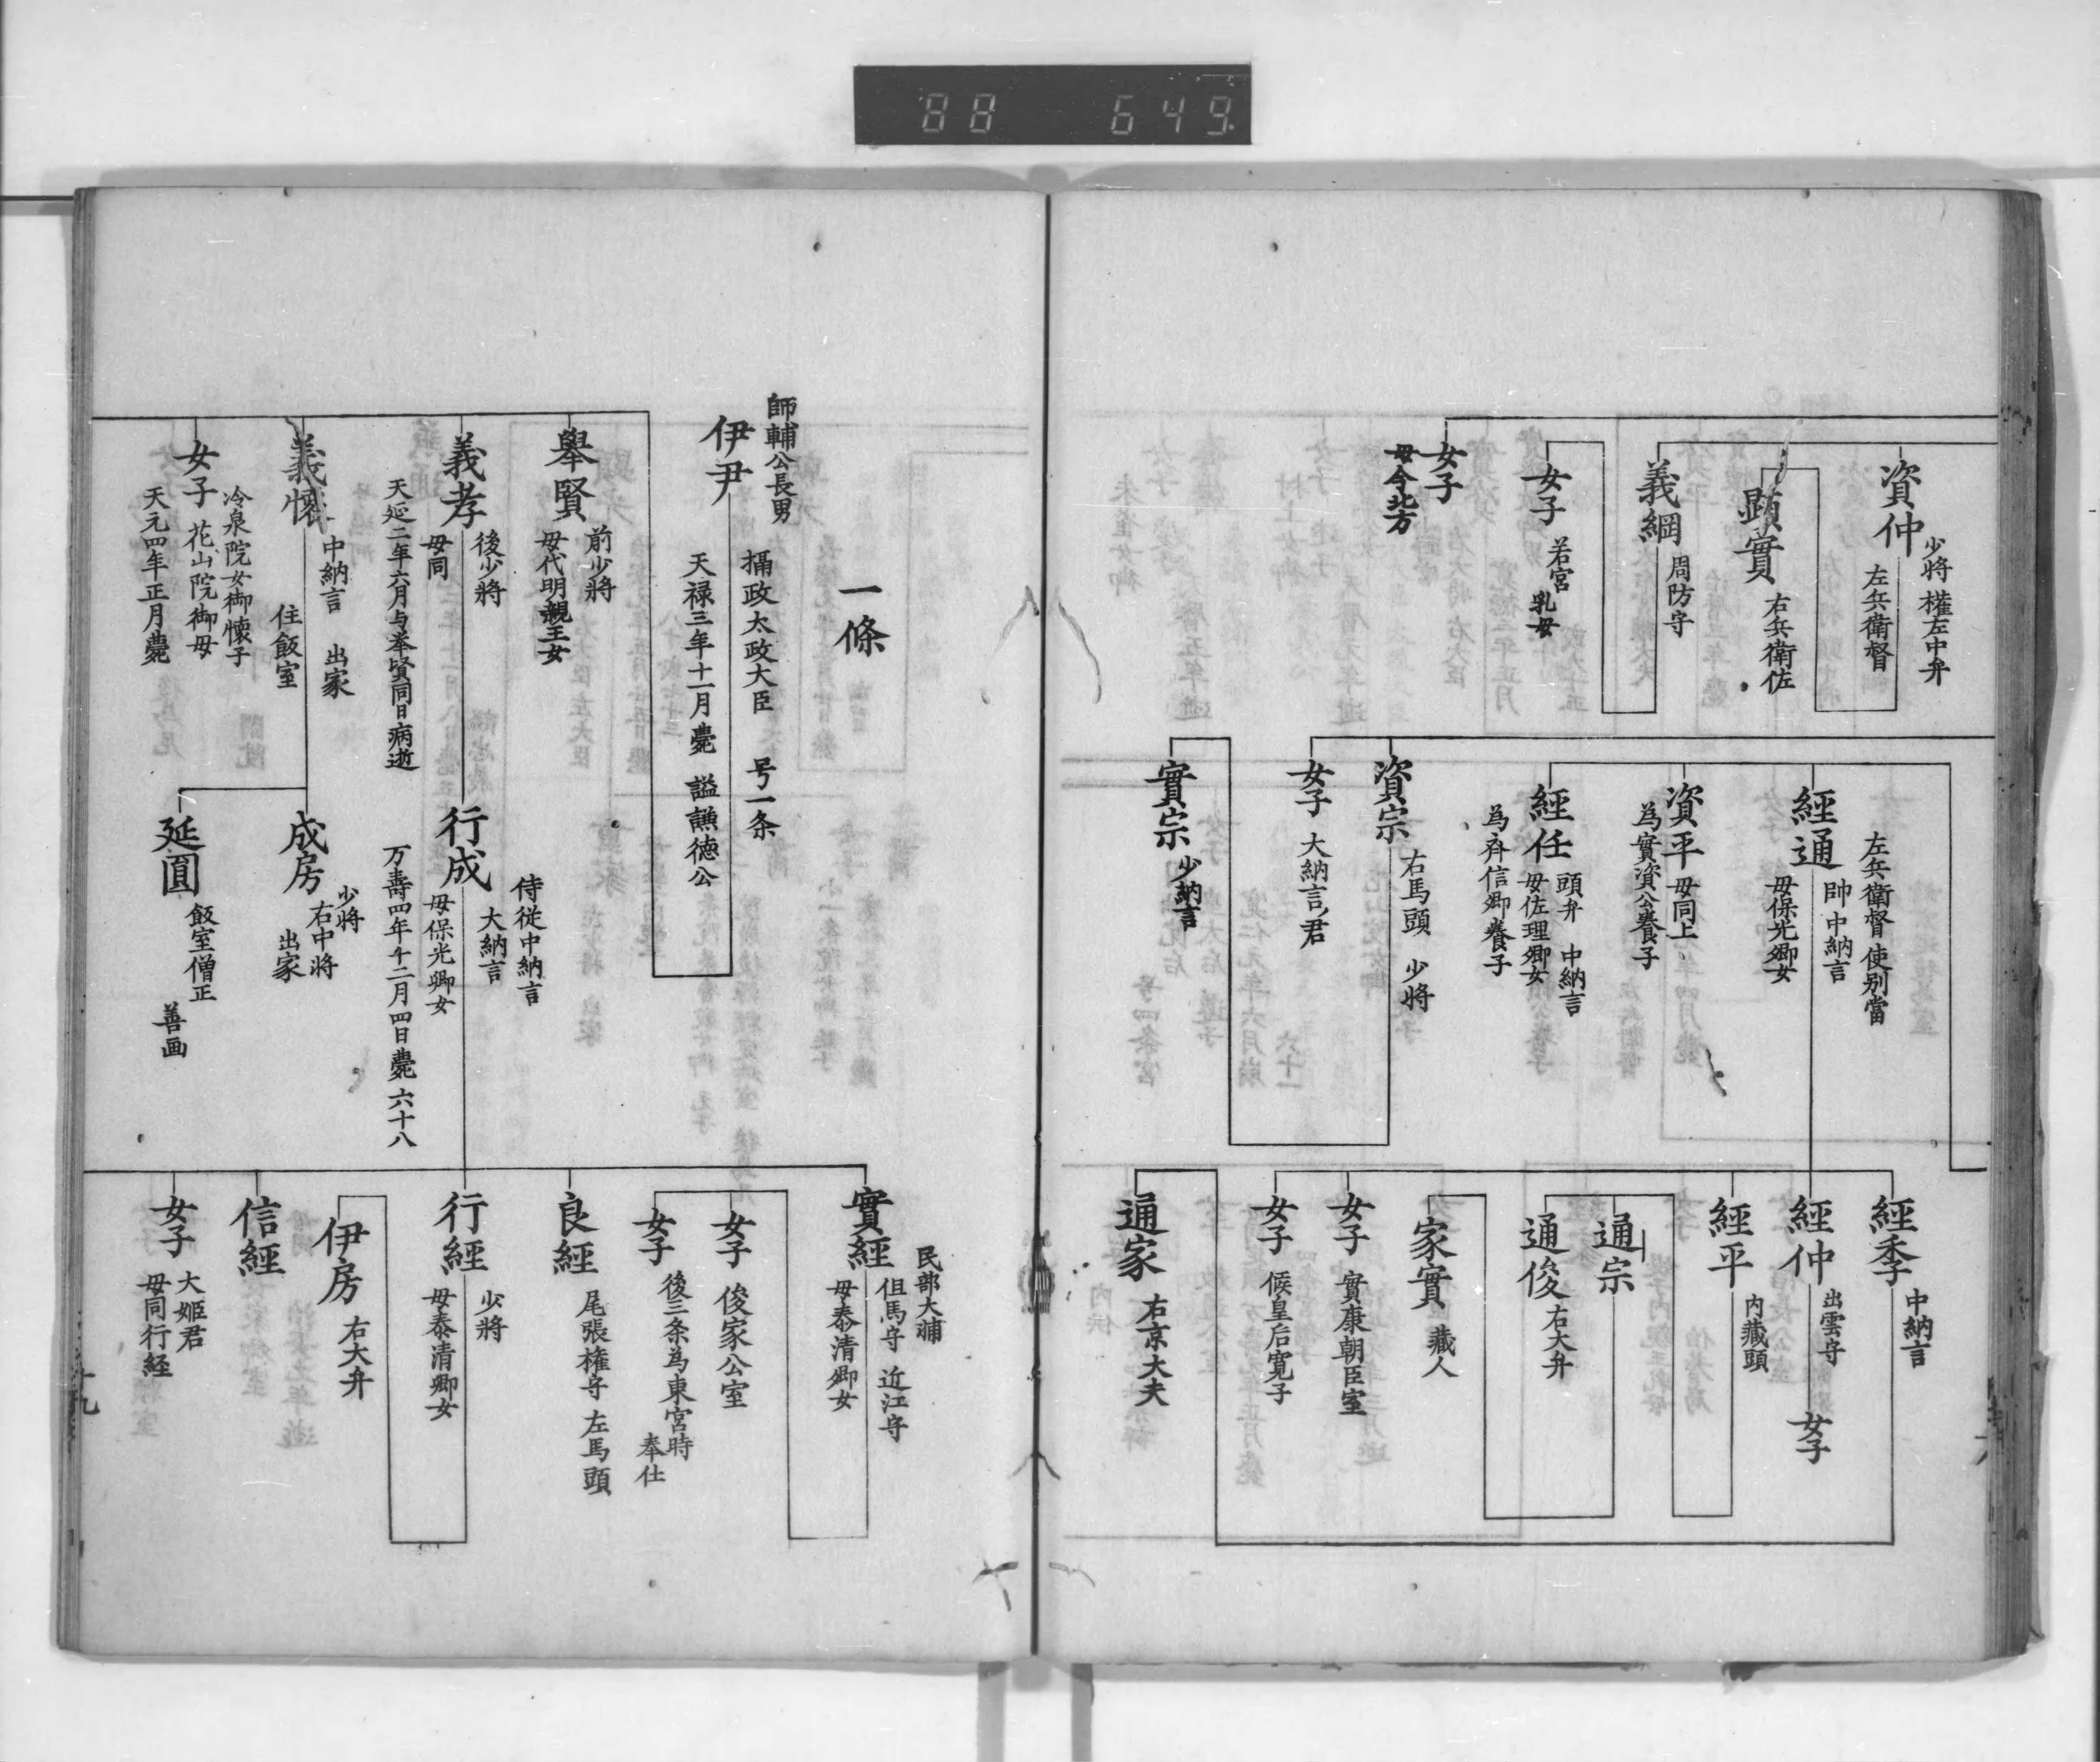 88 649
資仲
少将 權左中弁
左兵衛督
顕實
右兵衛佐
義綱
周防守
女子
若宮乳母
女子
母今北方
經通
左兵衛督 使別當
帥中納言
母保光卿女
資平
母同上
為實資公養子
經任
頭弁 中納言
母佐理卿女
為斉信卿養子
資宗
右馬頭 少將
女子
大納言君
實宗
少納言
經季
中納言
經仲
出雲守
女子
經平
内藏頭
通宗
通俊
右大弁
家實
藏人
女子
實康朝臣室
女子
候皇后寛子
通家
右京大夫
一條
師輔公長男
伊尹
攝政太政大臣 号一条
天禄三年十一月薨 謚謙徳公
舉賢
前少將
母代明親王女
義孝
後少將
母同
天延二年六月与挙賢同日病逝
義懐
中納言 出家
住飯室
女子
冷泉院女御懐子
花山院御母
天元四年正月薨
行成
侍従中納言
大納言
母保光卿女
万壽四年十二月四日薨 六十八
成房
少將
右中將
出家
延圓
飯室僧正
善画
實經
民部大輔
但馬守 近江守
母泰清卿女
女子
俊家公室
女子
後三条為東宮時
奉仕
良經
尾張権守 左馬頭
行經
少將
母泰清卿女
伊房
右大弁
信經
女子
大姫君
母同行経
十九